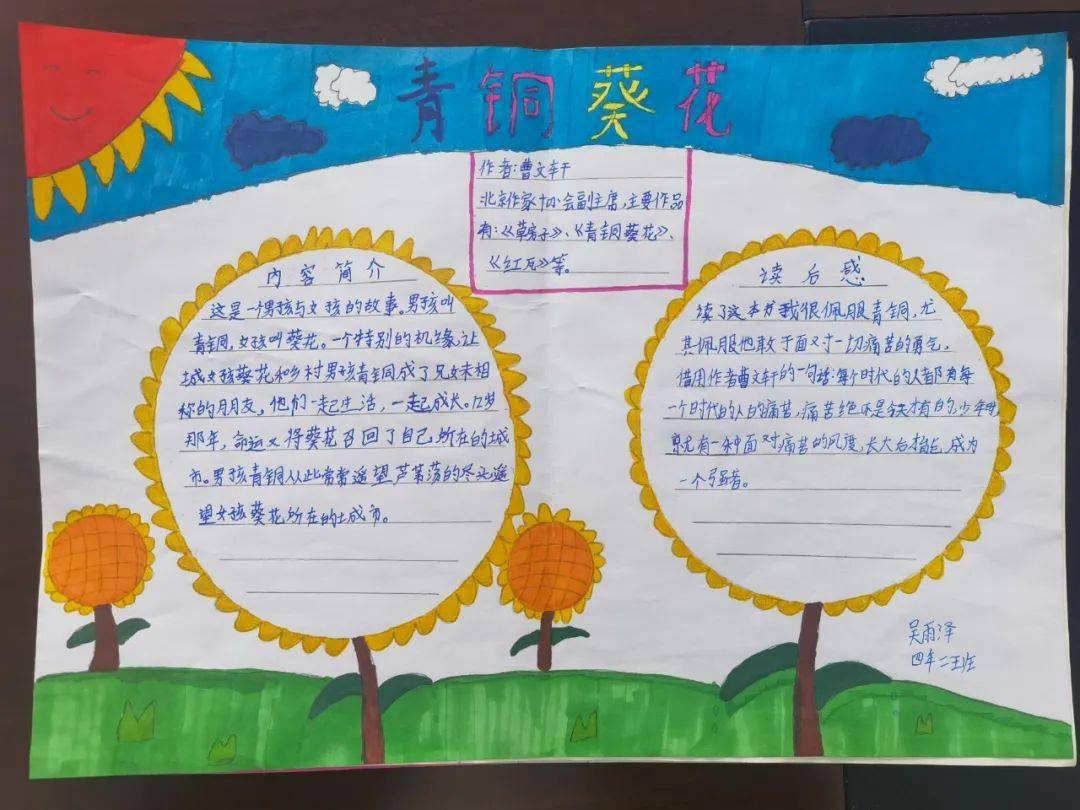 青铜葵花
作者:曹文轩
北京作家协会副主席,主要作品
有:《草房子》、《青铜葵花》、
《红瓦》等。
内容简介
这是一个男孩与女孩的故事。男孩叫
青铜,女孩叫葵花。一个特别的机缘,让
城市女孩葵花和乡村男孩青铜成了兄妹相
称的朋友。他们一起生活,一起成长。12岁
那年,命运又将葵花召回了自己所在的城
市。男孩青铜从此常常遥望芦苇荡的尽头遥
望女孩葵花所在的城市。
读后感
读了这本书我很佩服青铜,尤
其佩服他敢于面对一切痛苦的勇气,
借用作者曹文轩的一句话:每个时代的人都有每
一个时代的人的痛苦,痛苦绝不是今天才有的,少年时,
就有一种面对痛苦的风度,长大后才能成为
一个强者。
吴雨泽
四年二班